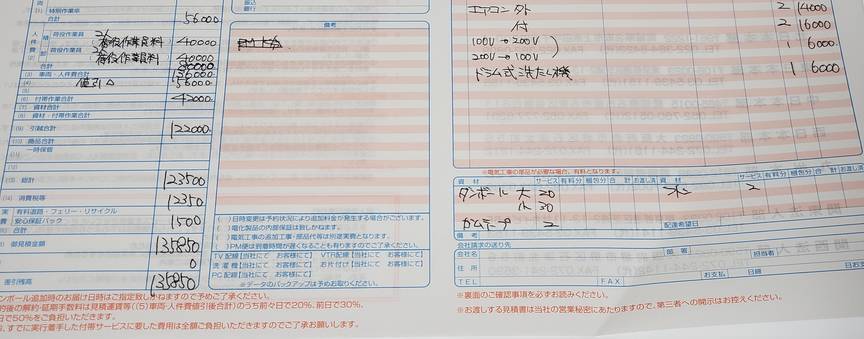 (1) 特別作業車
56000
人件費
積 荷役作業員
荷役作業員料 40000
卸 荷役作業員
荷役作業員料 40000
(2) 合計 80000
(3) 車両・人件費合計 136000
(4) 値引 △ 56000
(5)
(6) 付帯作業合計 42000
(7) 資材合計
(8) 資材・付帯作業合計
(9) 引越合計 122000
(10) 商品合計
(11) 一時保管
(12)
(13) 総計 123500
(14) 消費税等 12350
実費 有料道路・フェリー・リサイクル
安心保証パック 1500
合計
御見積金額 135850
0
差引残高 135850
振込
銀行
備考
( )日時変更は予約状況により追加料金が発生する場合がございます。
( )電化製品の内部保証は致しかねます。
( )電気工事の追加工事・部品代等は別途実費となります。
( )PM便は到着時間が遅くなることも有りますのでご了承ください。
TV配線【当社にて お客様にて】 VTR配線【当社にて お客様にて】
洗濯機【当社にて お客様にて】 お片付け【当社にて お客様にて】
PC配線【当社にて お客様にて】
※データのバックアップは予めお取りください。
エアコン 外 2 14000
付 2 16000
100V→200V
200V→100V 1 6000
ドラム式洗たく機 1 6000
※電気工事の部品が必要な場合、有料となります。
資材 サービス 有料分 梱包分 合計 お渡し済 資材 サービス 有料分 梱包分 合計 お渡し済
ダンボール 大 20 2
小 30
ガムテープ 2 配達希望日
備考
会社請求の送り先
会社名 部署 担当者
住所 お支払 日締 日お支
TEL FAX
※裏面のご確認事項を必ずお読みください。
※お渡しする見積書は当社の営業秘密にあたりますので、第三者への開示はお控えください。
ンボール追加時のお届け日時はご指定致しかねますので予めご了承ください。
的後の解約・延期手数料は見積運賃等((5)車両・人件費値引後合計)のうち前々日で20%、前日で30%、
日で50%をご負担いただきます。
、すでに実行着手した付帯サービスに要した費用は全額ご負担いただきますのでご了承お願いします。